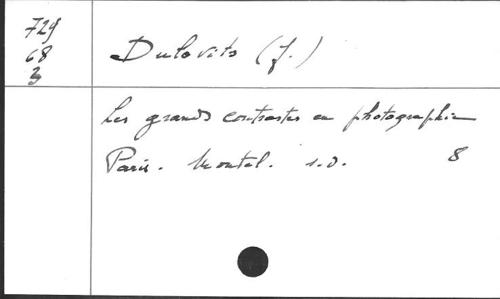 729
68
3
Dulovits (J.)
Les grands contrastes en photographie
Paris. Montel. s.d. 8